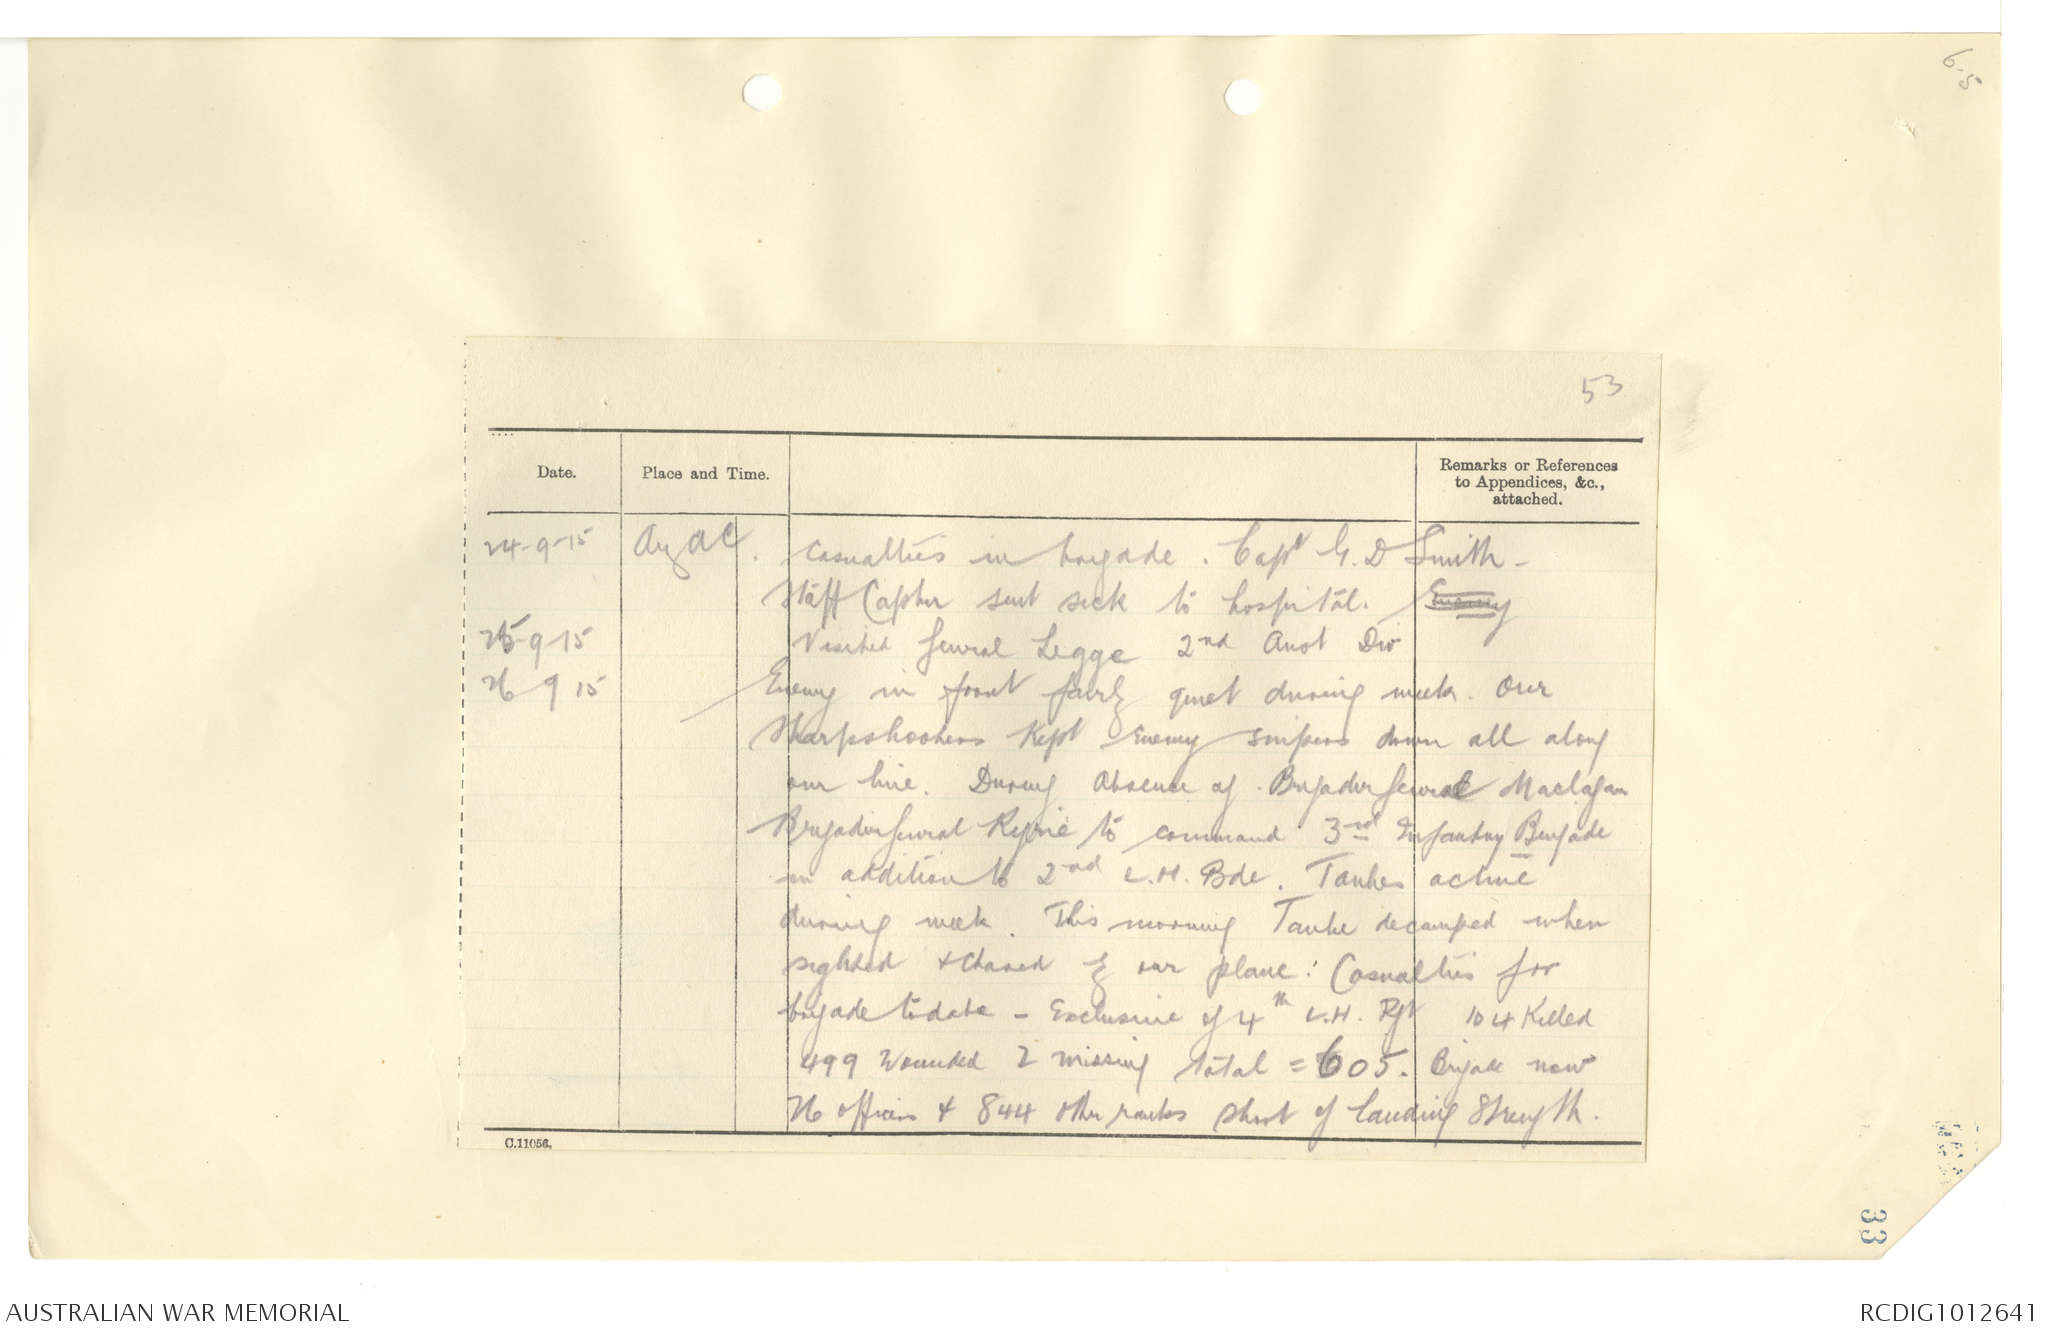 6-5
53
Date.
Place and Time.
Remarks or References
to Appendices, &c.,
attached.
24-9-15 Anzac. Casualties in brigade. Capt G. D Smith -
Staff Captn sent sick to hospital. Enemy
25-9-15 Visited General Legge 2nd Aust Div
26 9 15 Enemy in front fairly quiet during week. Our
Sharpshooters kept Enemy snipers down all along
our line. During Absence of Brigadier General Maclagan
Brigadier General Ryrie to command 3rd Infantry Brigade
in addition to 2nd L.H. Bde. Taubes active
during week. This morning Taube decamped when
sighted & chased by our plane. Casualties for
brigade to date - Exclusive of 4th L.H. Rgt 104 Killed
499 Wounded 2 missing total = 605. Brigade now
26 officers & 844 other ranks short of landing Strength.
C.11056.
33
AUSTRALIAN WAR MEMORIAL
RCDIG1012641